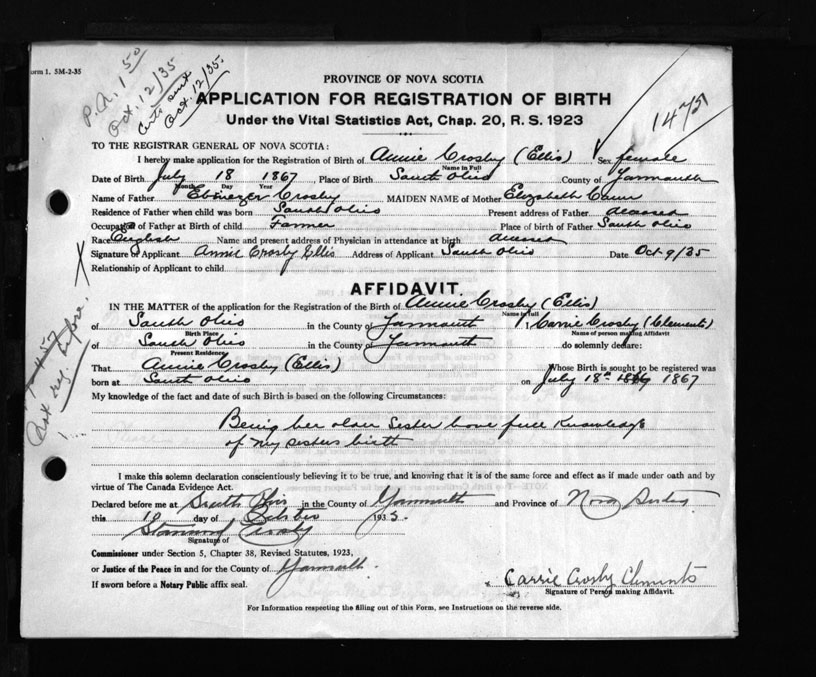 orm 1. 5M-2-35
P.A. 1 50
Oct. 12/35
Certs sent
Oct. 12/35.
PROVINCE OF NOVA SCOTIA
APPLICATION FOR REGISTRATION OF BIRTH
Under the Vital Statistics Act, Chap. 20, R. S. 1923
1475
TO THE REGISTRAR GENERAL OF NOVA SCOTIA:
I hereby make application for the Registration of Birth of Annie Crosby (Ellis) Sex female
Name in Full
Date of Birth July 18 1867 Place of Birth South Ohio County of Yarmouth
Month Day Year
Name of Father Ebenezer Crosby MAIDEN NAME of Mother Elizabeth
Residence of Father when child was born South Ohio Present address of Father deceased
Occupation of Father at Birth of child Farmer Place of birth of Father South Ohio
Race English Name and present address of Physician in attendance at birth deceased
Signature of Applicant Annie Crosby Ellis Address of Applicant South Ohio Date Oct 9/35
Relationship of Applicant to child
AFFIDAVIT.
IN THE MATTER of the application for the Registration of the Birth of Annie Crosby (Ellis)
Name in full
of South Ohio in the County of Yarmouth I, Carrie Crosby (Clements)
Birth Place Name of person making Affidavit
of South Ohio in the County of Yarmouth do solemnly declare:
Present Residence
That Annie Crosby (Ellis) Whose Birth is sought to be registered was
born at South Ohio on July 18th 1867
My knowledge of the fact and date of such Birth is based on the following Circumstances:
Not reg. before.
Being her older sister have full knowledge
of my sisters birth
I make this solemn declaration conscientiously believing it to be true, and knowing that it is of the same force and effect as if made under oath and by
virtue of The Canada Evidence Act.
Declared before me at South Ohio in the County of Yarmouth and Province of Nova Scotia
this 10 day of October 1935.
Crosby
Signature of
Commissioner under Section 5, Chapter 38, Revised Statutes, 1923,
or Justice of the Peace in and for the County of Yarmouth.
If sworn before a Notary Public affix seal.
Carrie Crosby Clements
Signature of Person making Affidavit.
For Information respecting the filling out of this Form, see Instructions on the reverse side.